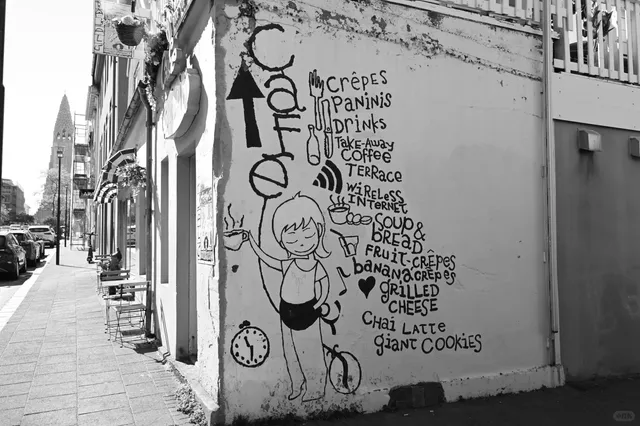 Café
CRÊPES
PANINIS
DRINKS
TAKE-AWAY
COFFEE
TERRACE
WIRELESS
INTERNET
SOUP &
BREAD
FRUIT-CRÊPES
BANANACRÊPES
GRILLED
CHEESE
CHAI LATTE
GIANT COOKIES